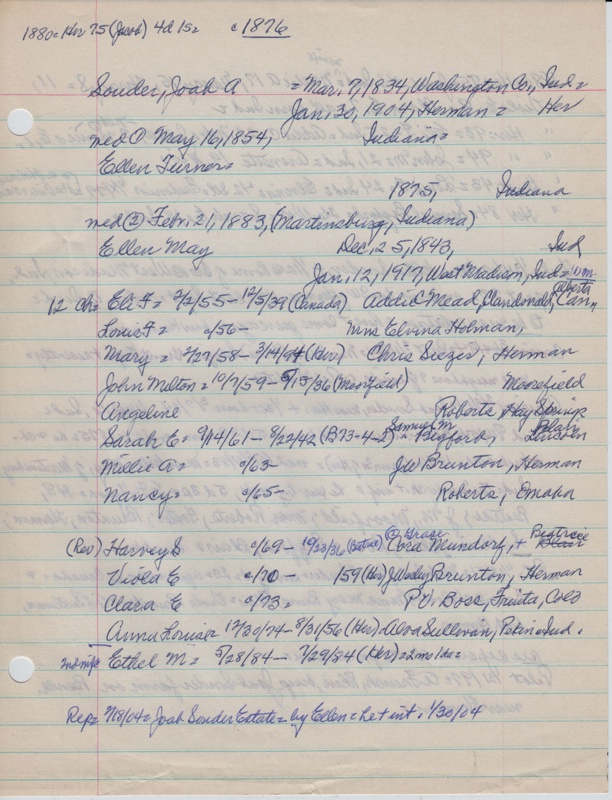 1880 = Her 75 (Jacob) 4d 1s = c 1876
Souder, Joab A = Mar. 7, 1834, Washington Co., Ind =
Jan. 30, 1904, Herman = Her
med ① May 16, 1854, Indiana =
Ellen Turner =
1875, Indiana
med ② Febr. 21, 1883, (Martinsburg, Indiana)
Ellen May Dec. 25, 1843, Ind
Jan. 12, 1917, West Madison, Ind =
12 ch = Eli F = 2/2/55 - 12/5/39 (Canada) Addie Mead, Clandonald, Alberta Can
Louis F = c/56 - Mrs Elvina Holman,
Mary = 2/27/58 - 3/14/94 (Her) Chris Seeger, Herman
John Milton = 10/7/59 - 5/15/36 (Moorefield) Moorefield
Angeline Roberts Hay Springs
Sarah E = 9/14/61 - 8/22/42 (B73-4-2) Samuel M Bigford,
Millie A = c/63 - JW Brunton, Herman
Nancy = c/65 - Roberts, Omaha
(Rev) Harvey S c/69 - 10/23/36 (Beatrice) ② Grace Cora Mundorf, + Beatrice Blair
Viola E c/70 - /59 (Her) J Wesley Brunton, Herman
Clara E c/73 = Boss, Fruita, Colo
Anna Louise 12/30/74 - 8/31/56 (Her) Alva Sullivan, Pekin Ind.
2nd wife Ethel M = 5/28/84 - 7/29/84 (Her) = 2 mo 1d =
Rep = 7/8/04 = Joab Souder Estate = by Ellen = Let int. 1/30/04